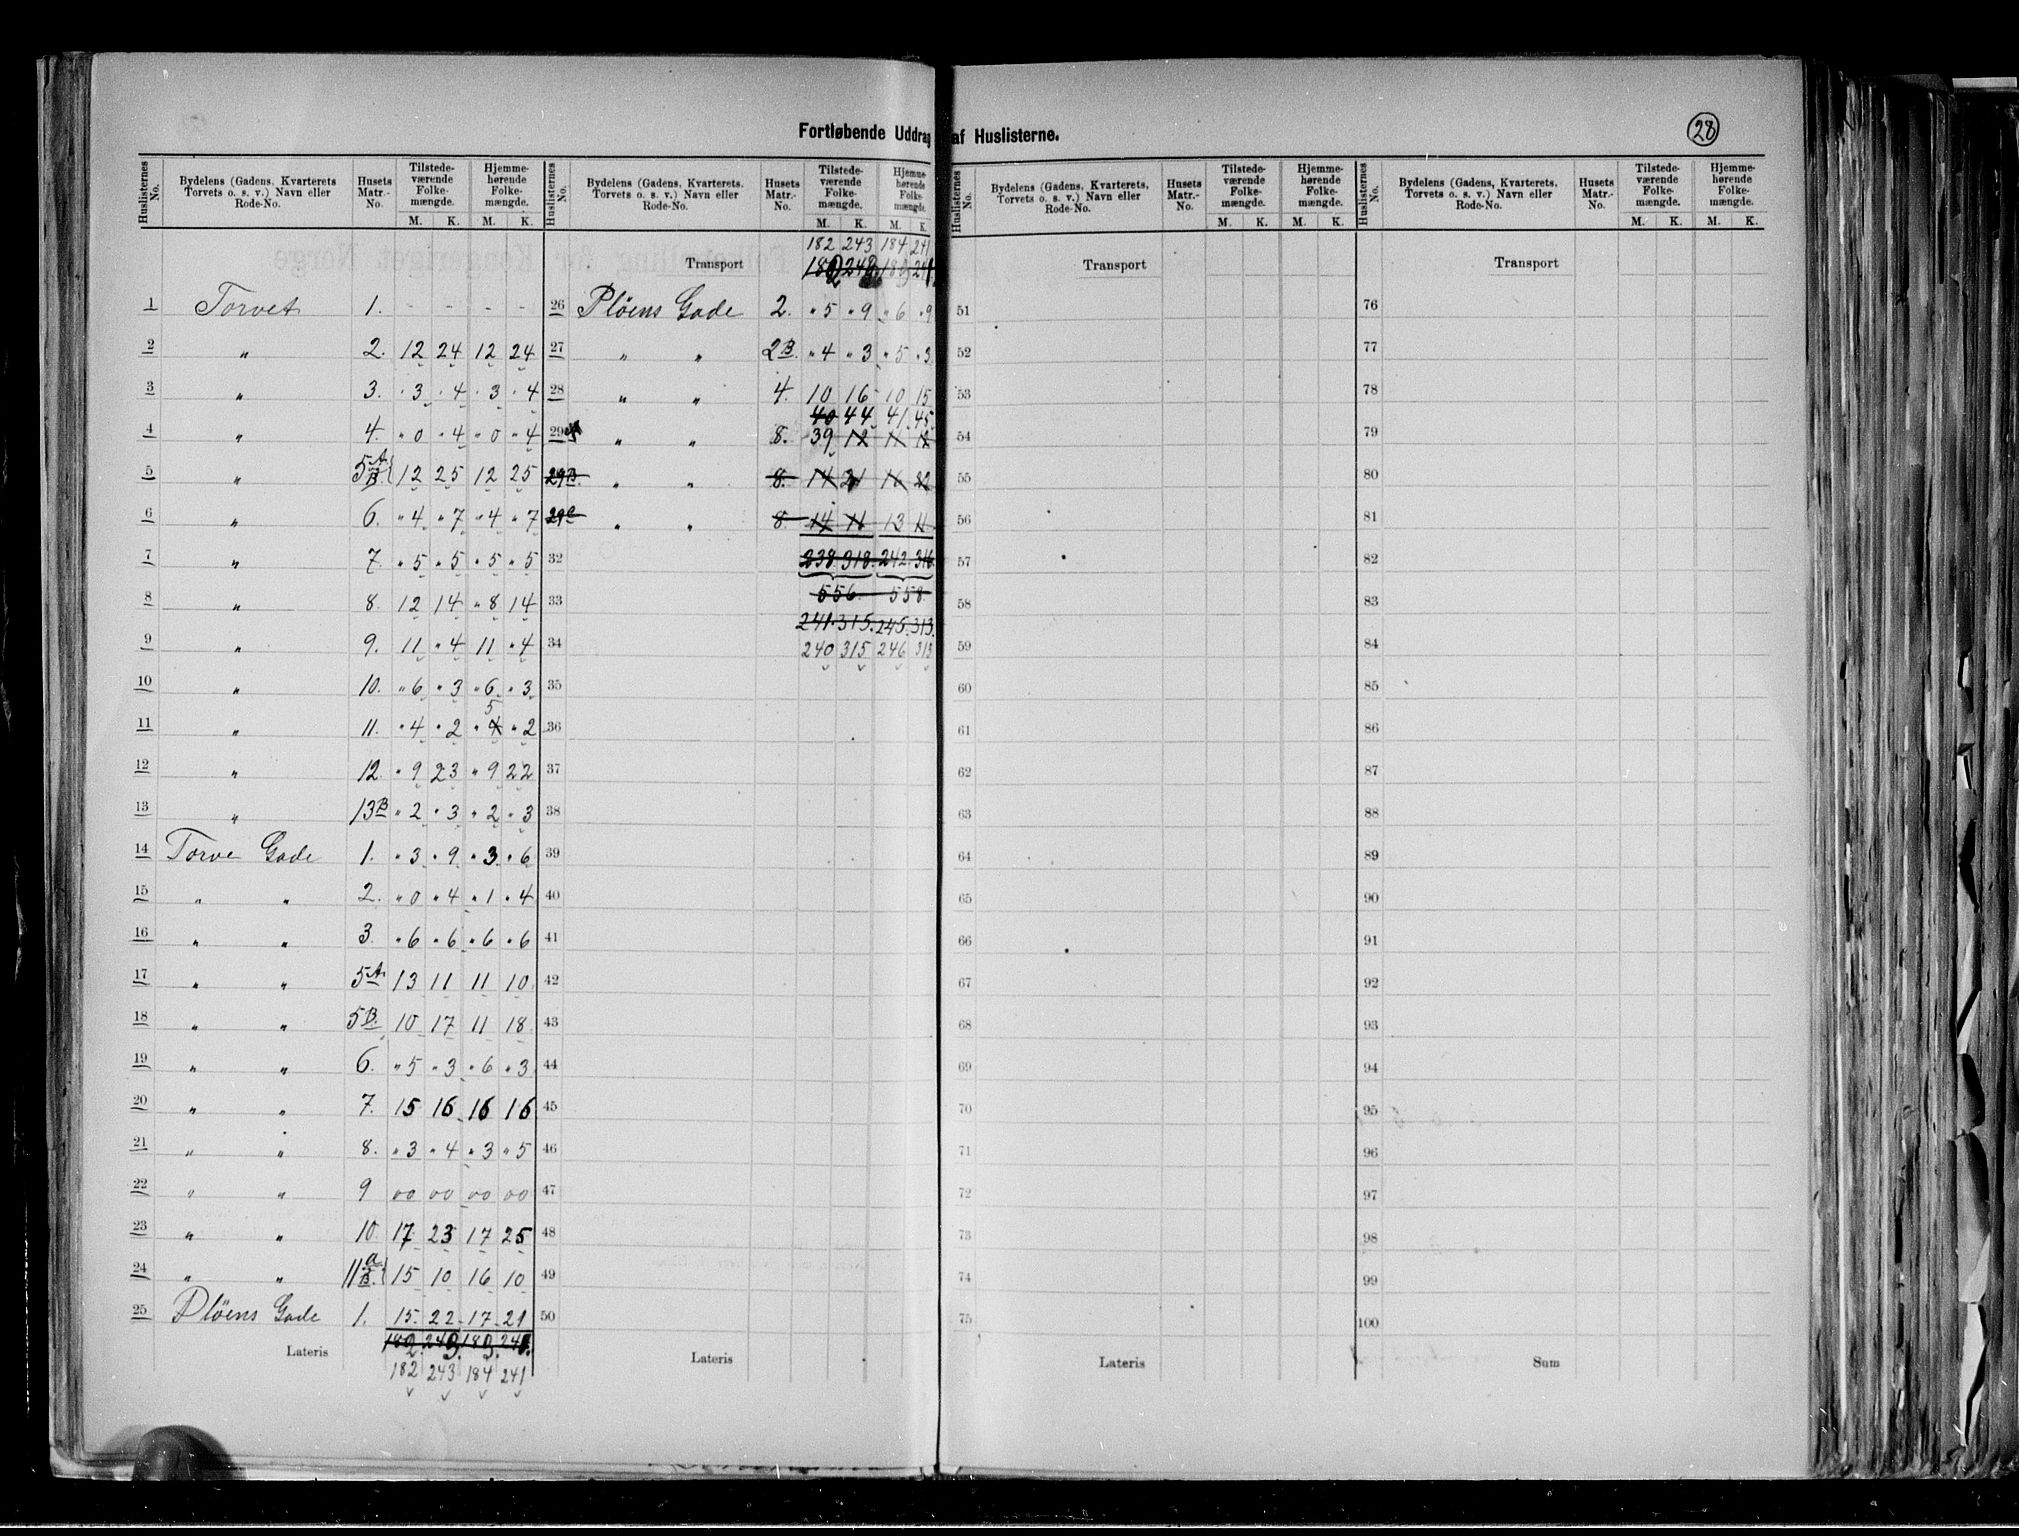 Fortløbende Uddrag af Huslisterne.
28
Huslisternes No. Bydelens (Gadens, Kvarterets Torvets o. s. v.) Navn eller Rode-No. Husets Matr.-No. Tilstede-værende Folke-mængde. M. K. Hjemme-hørende Folke-mængde. M. K.
1 Torvet 1. - - - -
2 " 2. 12 24 12 24
3 " 3. " 3 " 4 " 3 " 4
4 " 4. " 0 " 4 " 0 " 4
5 " 5 A B. 12 25 12 25
6 " 6. " 4 " 7 " 4 " 7
7 " 7. " 5 " 5 " 5 " 5
8 " 8. 12 14 " 8 14
9 " 9. 11 " 4 11 " 4
10 " 10. " 6 " 3 " 6 " 3
11 " 11. " 4 " 2 " 4 5 " 2
12 " 12. " 9 23 " 9 22
13 " 13B " 2 " 3 " 2 " 3
14 Torve Gade 1. " 3 " 9 " 3 " 6
15 " " 2. " 0 " 4 " 1 " 4
16 " " 3. " 6 " 6 " 6 " 6
17 " " 5A 13 11 11 10
18 " " 5B. 10 17 11 18
19 " " 6. " 5 " 3 " 6 " 3
20 " " 7. 15 16 16 16
21 " " 8. " 3 " 4 " 3 " 5
22 " " 9 00 00 00 00
23 " " 10. 17 23 17 25
24 " " 11 a B. 15 10 16 10
25 Plöens Gade 1. 15 22 17 21
Lateris 182. 243. 183. 241.
182 243 184 241
Huslisternes No. Bydelens (Gadens, Kvarterets, Torvets o. s. v.) Navn eller Rode-No. Husets Matr.-No. Tilstede-værende Folke-mængde. M. K. Hjemme-hørende Folke-mængde. M. K.
182 243 184 241
Transport 182 243 183 241
26 Plöens Gade 2. " 5 " 9 " 6 " 9
27 " " 2B. " 4 " 3 " 5 " 3
28 " " 4. 10 16 10 15
40 44 41 45
29A " " 8. 39 12 11 12
29B. " " 8. 14 21 16 22
29C " " 8. 14 11 13 11
32 238. 318. 242. 316
33 556. 558.
241. 315. 245. 313.
34 240 315 246 313
35
36
37
38
39
40
41
42
43
44
45
46
47
48
49
50
Lateris
Huslisternes No. Bydelens (Gadens, Kvarterets, Torvets o. s. v.) Navn eller Rode-No. Husets Matr.-No. Tilstede-værende Folke-mængde. M. K. Hjemme-hørende Folke-mængde. M. K.
Transport
51
52
53
54
55
56
57
58
59
60
61
62
63
64
65
66
67
68
69
70
71
72
73
74
75
Lateris
Huslisternes No. Bydelens (Gadens, Kvarterets, Torvets o. s. v.) Navn eller Rode-No. Husets Matr.-No. Tilstede-værende Folke-mængde. M. K. Hjemme-hørende Folke-mængde. M. K.
Transport
76
77
78
79
80
81
82
83
84
85
86
87
88
89
90
91
92
93
94
95
96
97
98
99
100
Sum